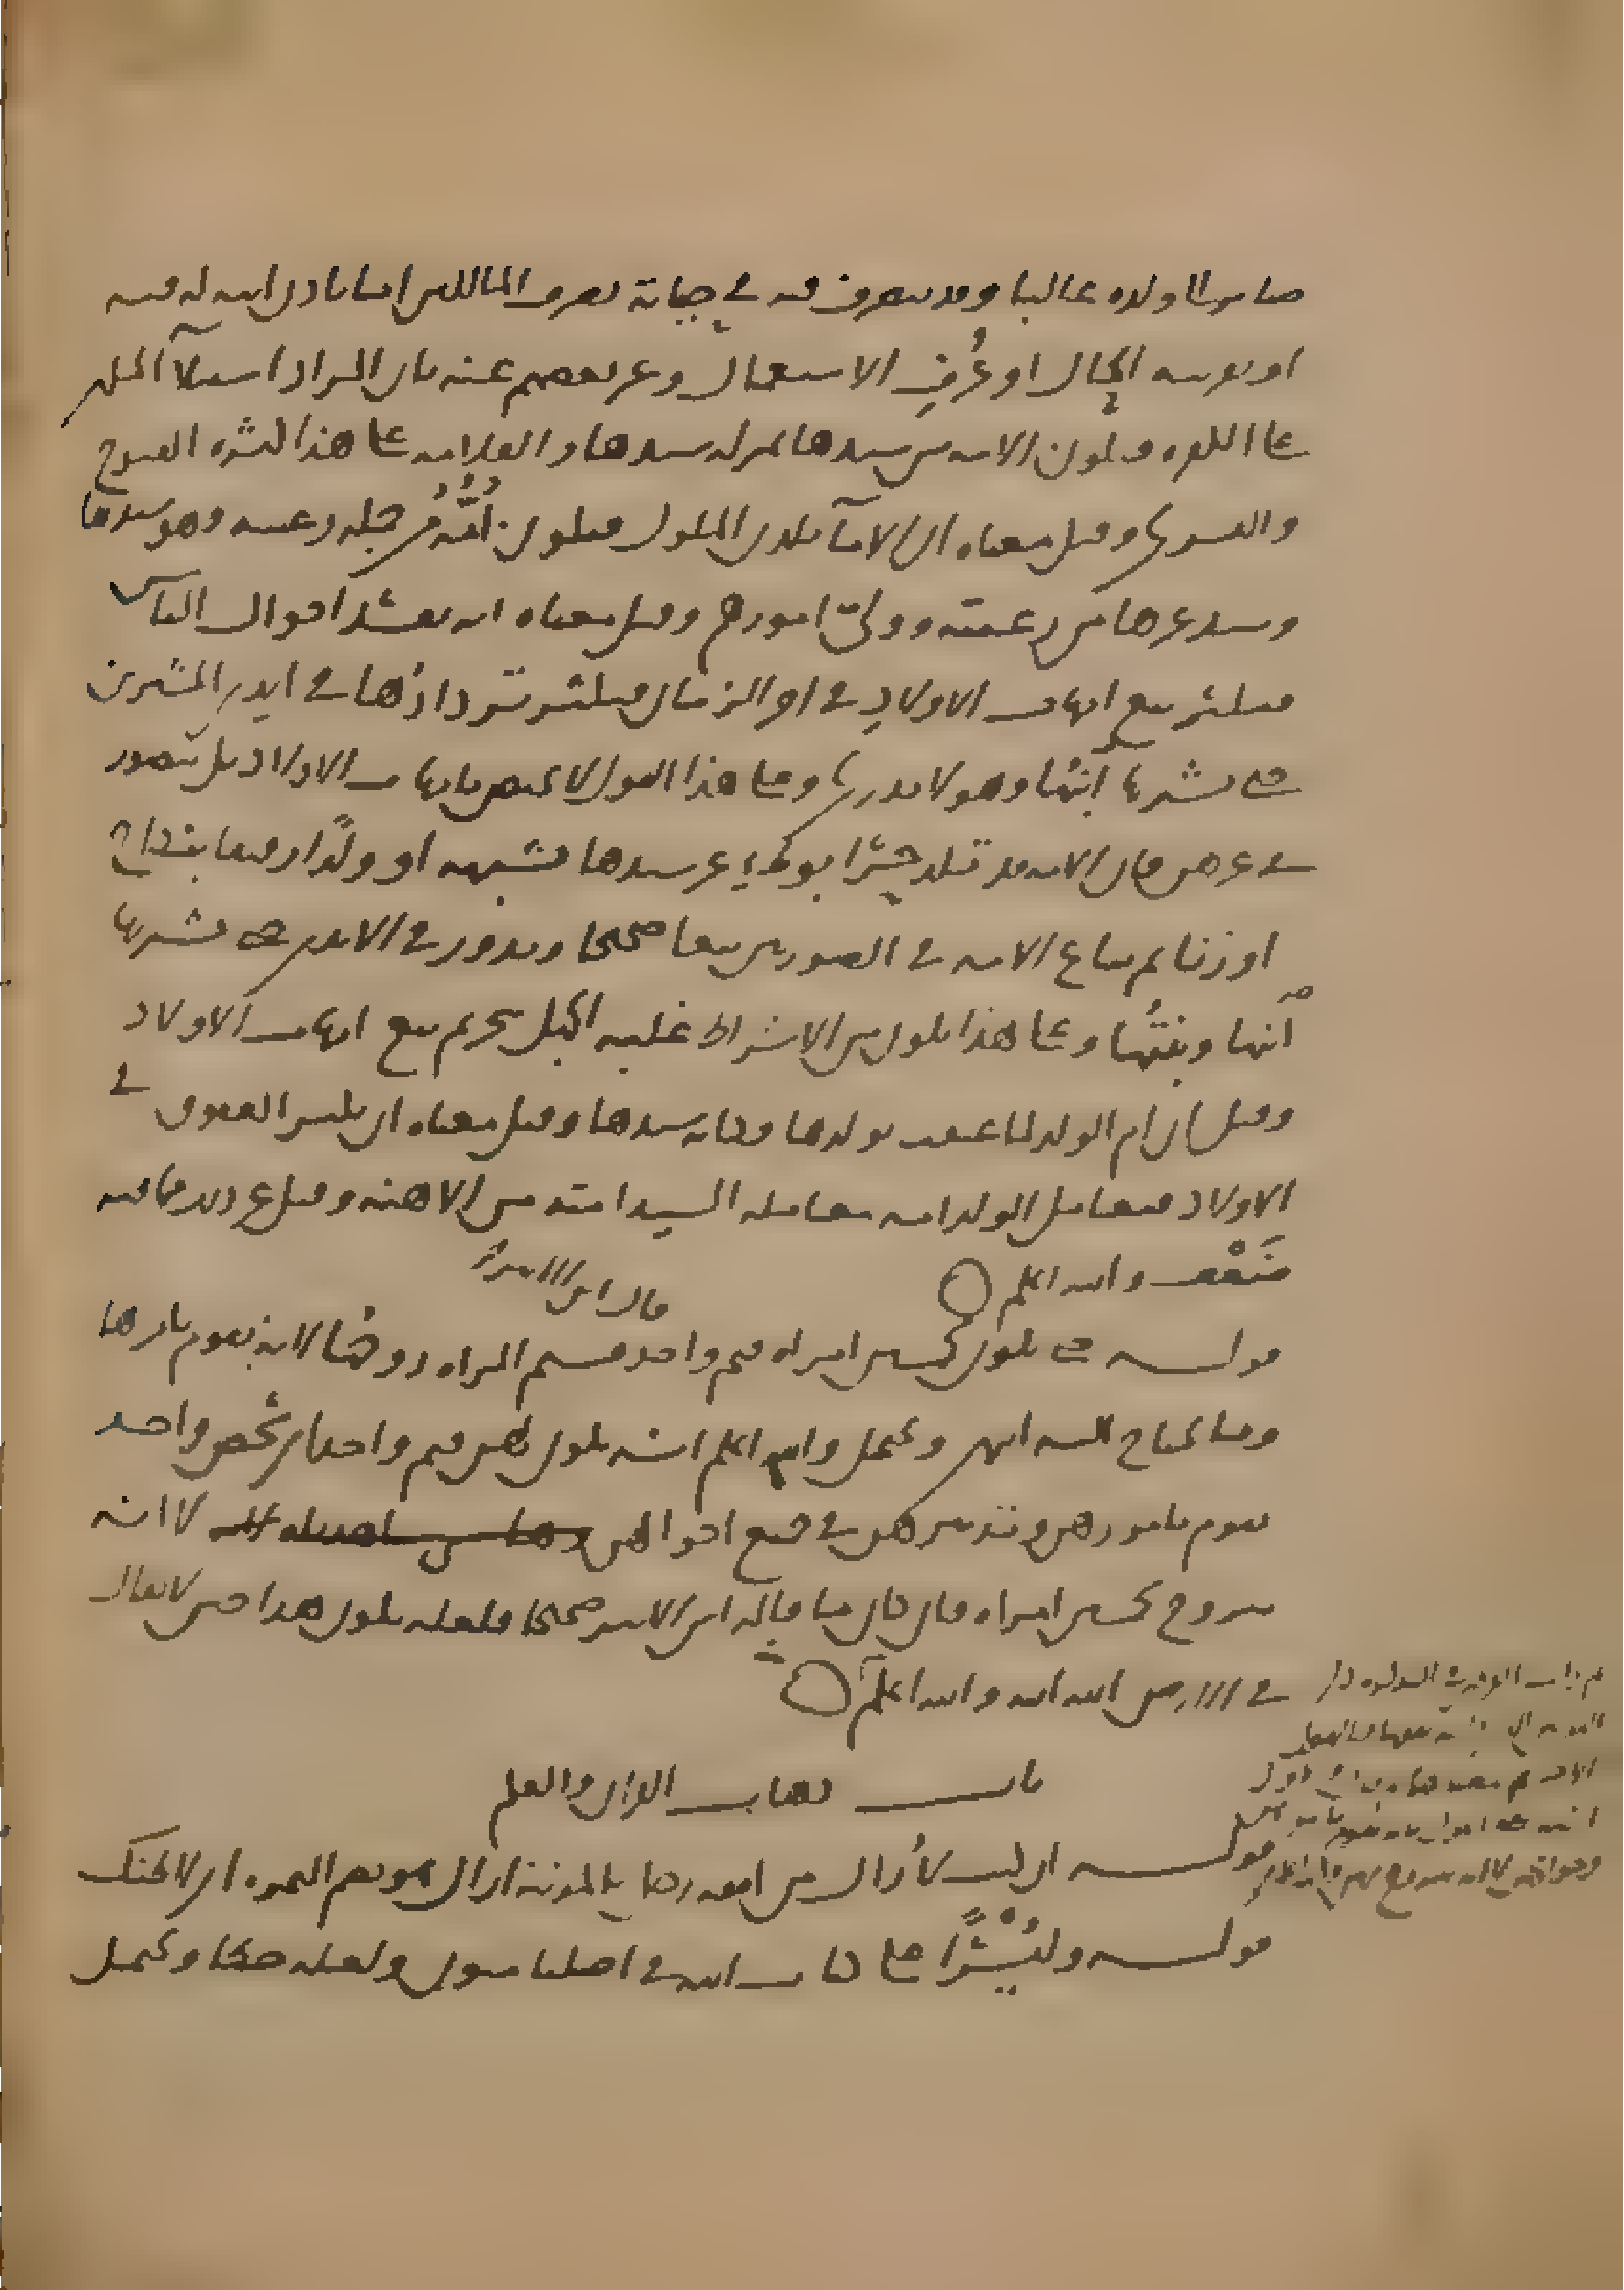 صائر الى ولده غالبا وقد يتصرف فيه في حياته تصرف المالكين اما باذن ابيه له فيه
او بقرينة الحال او عُرفِ الاستعمال وعن بعضهم عنه بان المراد استيلآ المسلمين
على الكفرة فيكون الامة من سيدها بمنزلة سيدها والعلامة على هذا كثرة الفتوح
والتسري وقيل معناه ان الامآ يلدن الملوك فيكون اُمُّهُ من جملة رعيته وهو سيدها
وسيد غيرها من رعيته وولىّ امورهم وقيل معناه انه يفسد احوال الناس
فيكثر بيع امهات الاولادِ في اخر الزمان فيكثر تردادُها في ايدي المشترين
حتى يشتريها ابنُها وهو لا يدري وعلى هذا القول لا يختص بامهات الاولاد بل يتصور
في غيرهن فان الامة قد تلد حُرّا بوطء غير سيدها بشبهة او ولدًا رقيقا بنكاح
او زنا ثم تباع الامة في الصورتين بيعا صحيحا وتدور في الايدي حتى يشتريها
اَبنها وبنتُها وعلى هذا يكون من الاشراط غلبة الجهل بتحريم بيع امهات الاولاد
وقيل ان ام الولد لما عتقت بولدها فكانه سيدها وقيل معناه ان يكثر العقوق في
الاولاد فيعامل الولد امه معاملة السيد امته من الاهنة وقيل غير ذلك مما فيه
ضَعْف والله اعلم
قال ابن الاثير
قولــه حتى يكون لخمسين امراة قيم واحد قيم المراة زوجُها لانه يقوم بامرها
وما تحتاج اليه انتهى ويحتمل والله اعلم انه يكون لهن قيم واحد اي شخص واحد
يقوم بامورهن وتدبيرهن في جميع احوالهن لا انه
يتزوج بخمسين امراة فان كان ما قاله ابن الاثير صحيحا فلعله يكون هذا حين لا يقال
في الارض الله الله والله اعلم
بابــ كتابــ القران والعلم
قولــه ان كنت لأُرَاك من افقه رجل بالمدينة اراك هو بضم الهمزة اي لاظنك
قولــه ولنُسْرًا على كتاب الله في اصلنا منون ولعله صحيحا ويحتمل